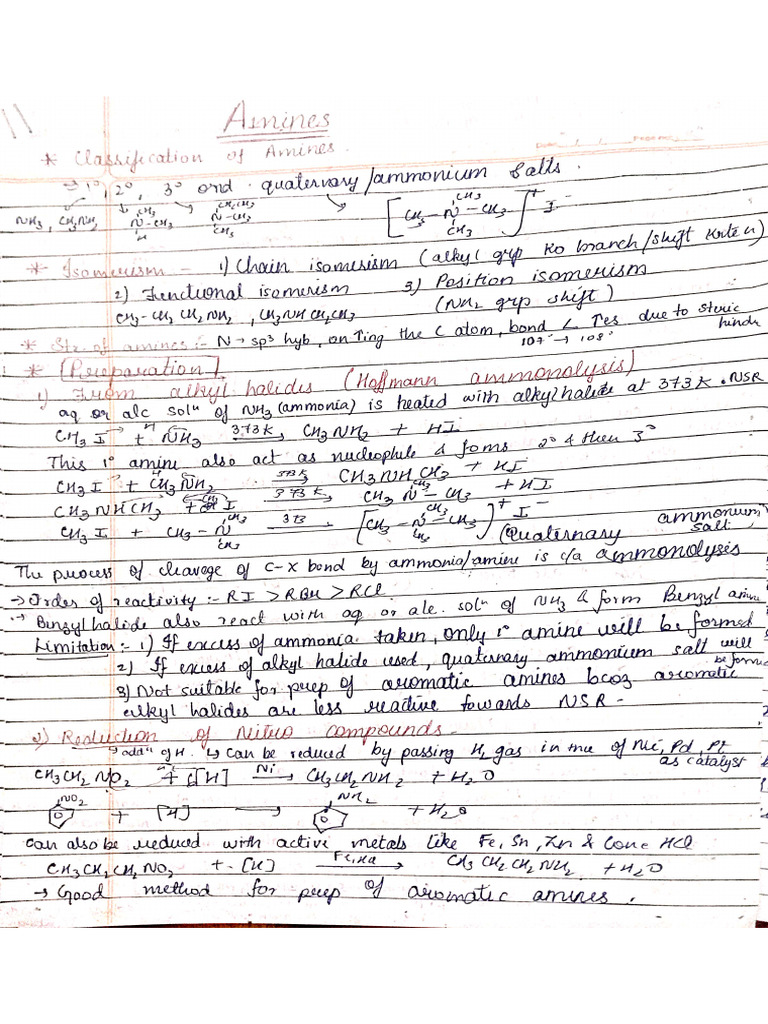 Amines
* Classification of Amines.
→ 1°, 2°, 3° and quaternary/ammonium Salts.
NH3, CH3NH2 CH3 N-CH3 H CH3 N-CH3 CH3 [CH3-N-CH3]+ I- CH3 CH3
* Isomerism - 1) Chain isomerism (alkyl grp ko branch/shift
2) Functional isomerism 3) Position isomerism
CH3-CH2 CH2 NH2, CH3NH CH2CH3 (NH2 grp shift)
* Str. of amines :- N → sp3 hyb, on ↑ing the C atom, bond ∠ ↑es due to steric
107° → 108° hindr
* [Preparation]
1) From alkyl halides (Hoffmann ammonolysis)
aq or alc soln of NH3 (ammonia) is heated with alkyl halide at 373 K. NSR
CH3 I + NH3 373K → CH3NH2 + HI
This 1° amine also act as nucleophile & foms 2° & then 3°
CH3 I + CH3NH2 373K → CH3NHCH3 + HI
CH3NHCH3 + CH3I 373K → CH3 N-CH3 CH3 + HI
CH3 I + CH3-N CH3 CH3 373 → [CH3-N-CH3]+ I- CH3 CH3 (Quaternary ammonium salt)
The process of clavage of C-X bond by ammonia/amine is c/a ammonolysis
→ Order of reactivity :- RI > RBr > RCl.
→ Benzyl halide also react with aq or alc. soln of NH3 & form Benzyl amine
Limitation :- 1) If excess of ammonia taken, only 1° amine will be formed
2) If excess of alkyl halide used, quaternary ammonium salt will
be formed
3) Not suitable for prep of aromatic amines bcoz aromatic
alkyl halides are less reactive towards NSR -
2) Reduction of Nitro compounds.
→ addn of H. ↳ can be reduced by passing H2 gas in the of Ni, Pd, Pt
as catalyst
CH3CH2 NO2 + [H] Ni → CH3CH2 NH2 + H2O
NO2 + [H] → NH2 + H2O
can also be reduced with active metals like Fe, Sn, Zn & Conc HCl
CH3CH2CH2NO2 + [H] Fe, HCl → CH3 CH2 CH2 NH2 + H2O
→ Good method for prep of aromatic amines.